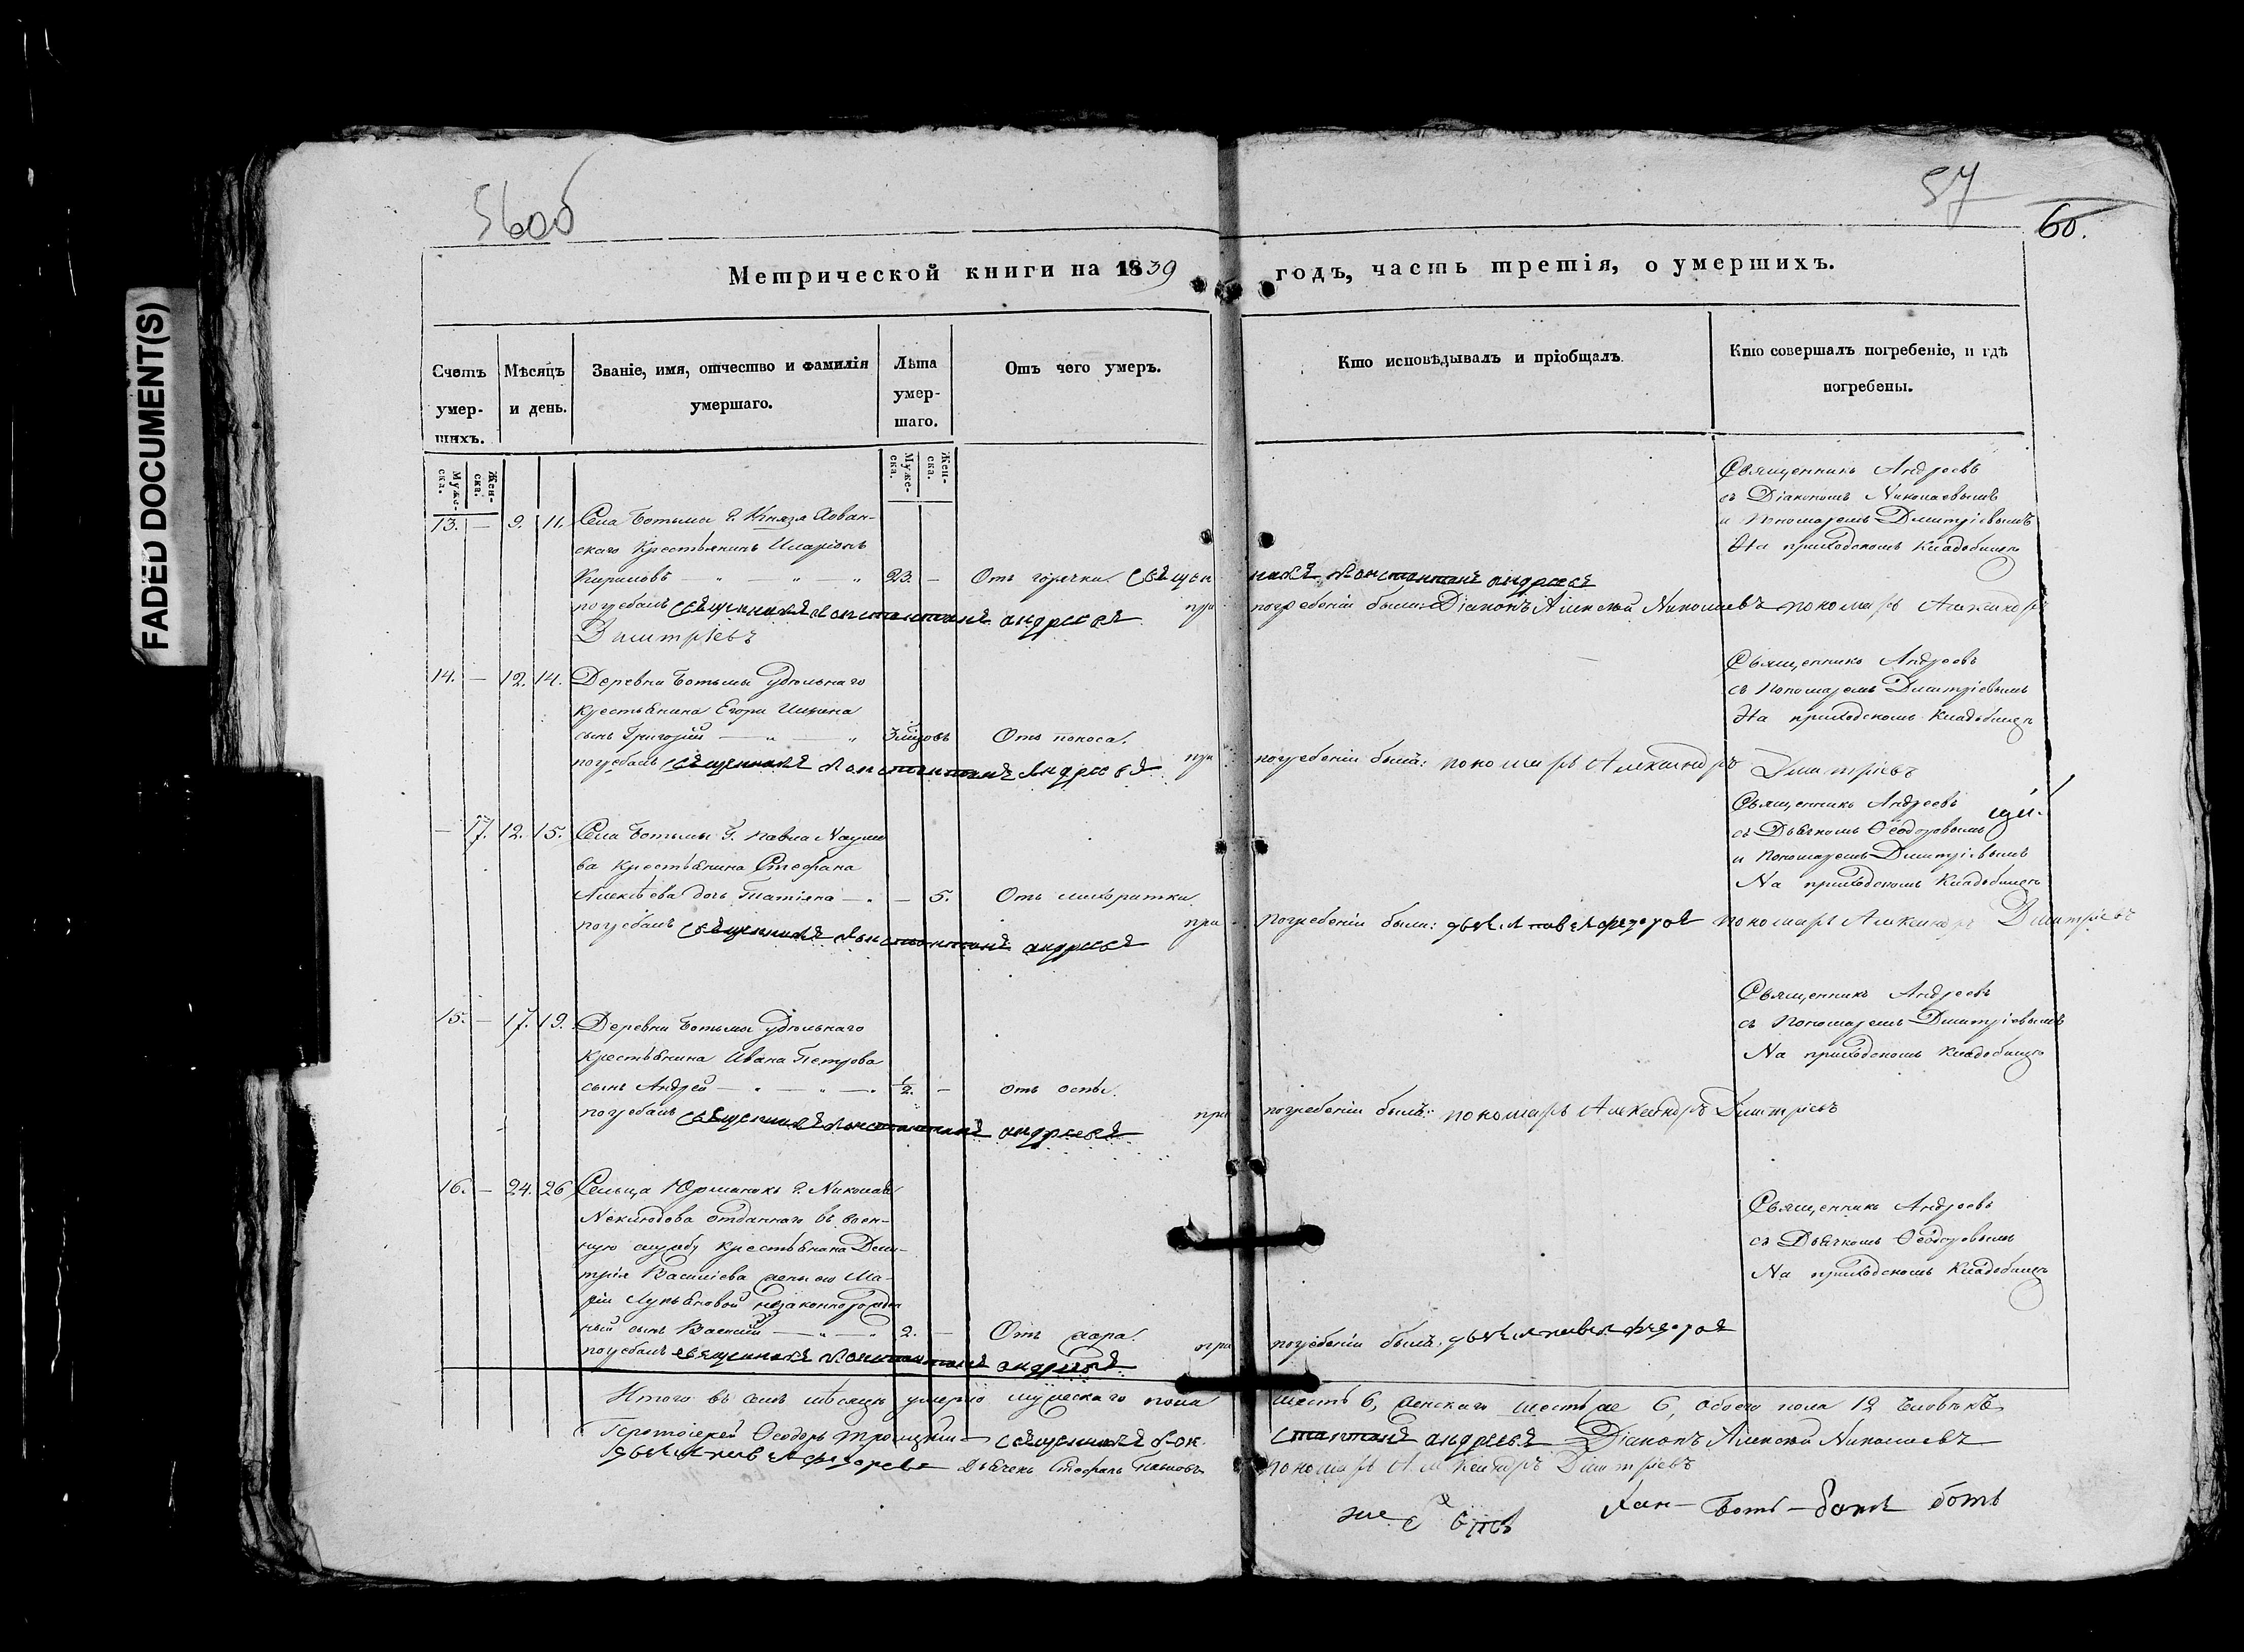 FADED DOCUMENT(S)
56об
57
60.
Метрической книги на 1839 годъ, часть третія, о умершихъ.
Счетъ умершихъ.
Мѣсяцъ и день.
Званіе, имя, отчество и фамилія умершаго.
Лѣта умершаго.
Отъ чего умеръ.
Кто исповѣдывалъ и пріобщалъ.
Кто совершалъ погребеніе, и гдѣ погребены.
Муже-ска. Жен-ска.
Муже-ска. Жен-ска.
13. — 9. 11. Села Ботьмы Г. Князя Хован-
скаго Крестьянинъ Иларіонъ
Кириловъ — „ — „ — „ 23. — Отъ горячки. священникъ Константинъ андреевъ
Священникъ Андреевъ
съ Діакономъ Николаевымъ
и Пономаремъ Дмитріевымъ
На приходскомъ Кладбищѣ
погребалъ священникъ Константинъ андреевъ при погребеніи были: Діаконъ Алексѣй Николаевъ пономарь Александръ
Дмитріевъ
14. — 12. 14. Деревни Ботьмы Удѣльнаго
крестьянина Егора
сынъ Григорій — „ — „ Отъ поноса.
Священникъ Андреевъ
съ Пономаремъ Дмитріевымъ
На приходскомъ Кладбищѣ
погребалъ священникъ Константинъ Андреевъ при погребеніи былъ: пономарь Александръ Дмитріевъ
— 17. 12. 15. Села Ботьмы Г. Павла Наумо
ва Крестьянина Стефана
Алексѣева дочь Татіяна — „ — 5. Отъ лихоратки.
Священникъ Андреевъ
съ Дьячкомъ Ѳеодоровымъ
и Пономаремъ Дмитріевымъ
На приходскомъ Кладбищѣ
погребалъ священникъ Константинъ андреевъ при погребеніи были: дьячекъ павелъ федоровъ пономарь Александръ Дмитріевъ
15. — 17. 19. Деревни Ботьмы Удѣльнаго
Крестьянина Ивана Петрова
сынъ Андрей — „ — „ — „ 1/2. — отъ оспы.
Священникъ Андреевъ
съ Пономаремъ Дмитріевымъ
На приходскомъ Кладбищѣ
погребалъ священникъ Константинъ андреевъ при погребеніи былъ: пономарь Александръ Дмитріевъ
16. — 24. 26 Сельца Юрманокъ Г. Николая
Неклюдова отданнаго въ воен-
ную службу крестьянина Дми-
трія Василіева жены его Ма-
ріи Лукьяновой незаконнорожден
ный сынъ Василій — „ — „ 2. — Отъ жара.
Священникъ Андреевъ
съ Дьячкомъ Ѳеодоровымъ
На приходскомъ Кладбищѣ
погребалъ священникъ Константинъ андреевъ при погребеніи былъ: дьячекъ павелъ федоровъ
Итого въ семъ мѣсяцѣ умерло мужескаго пола шесть 6, женскаго шесть же 6, обоего пола 12 человѣкъ
Протоіерей Ѳеодоръ Троицкій священникъ Константинъ андреевъ Діаконъ Алексѣй Николаевъ
дьячекъ павелъ федоровъ Дьячекъ Стефанъ Павловъ пономарь Александръ Дмитріевъ